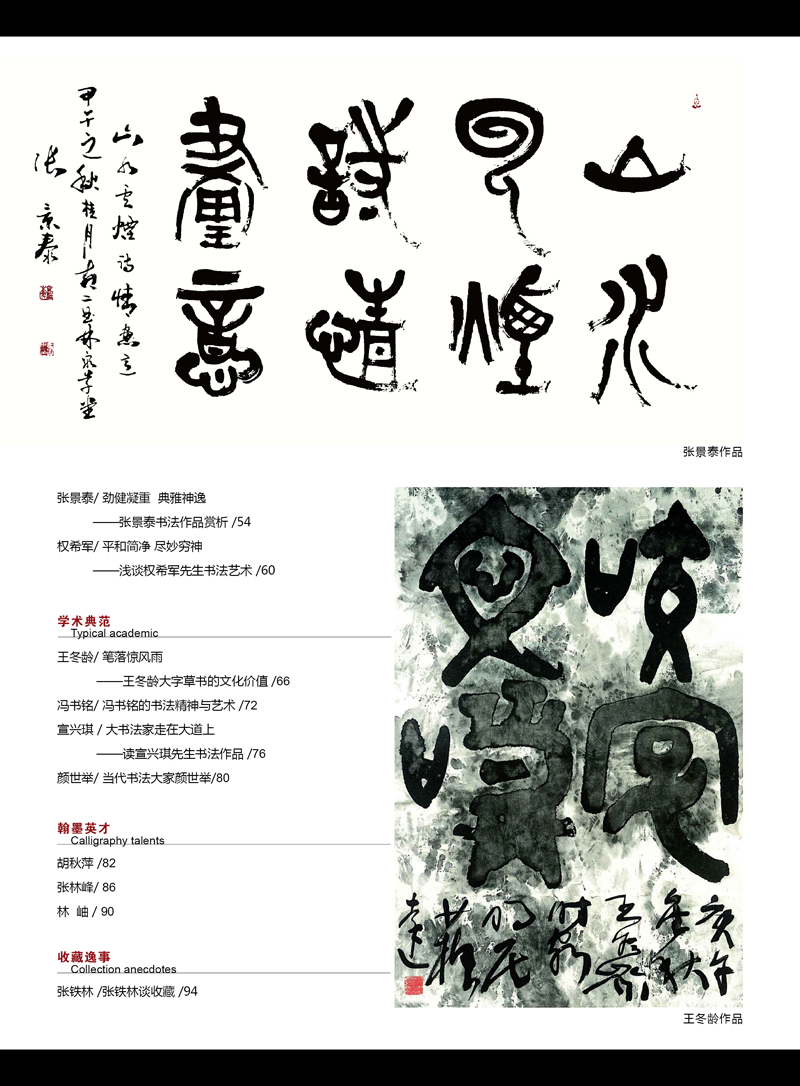 山水
云烟
詩情
畫意
山水云煙诗情画意
甲午之秋桂月
张景泰
张景泰作品
张景泰/ 劲健凝重 典雅神逸
——张景泰书法作品赏析 /54
权希军/ 平和简净 尽妙穷神
——浅谈权希军先生书法艺术 /60
学术典范
Typical academic
王冬龄/ 笔落惊风雨
——王冬龄大字草书的文化价值 /66
冯书铭/ 冯书铭的书法精神与艺术 /72
宣兴琪 / 大书法家走在大道上
——读宣兴琪先生书法作品 /76
颜世举/ 当代书法大家颜世举/80
翰墨英才
Calligraphy talents
胡秋萍 /82
张林峰/ 86
林 岫 / 90
收藏逸事
Collection anecdotes
张铁林 /张铁林谈收藏 /94
王冬龄作品